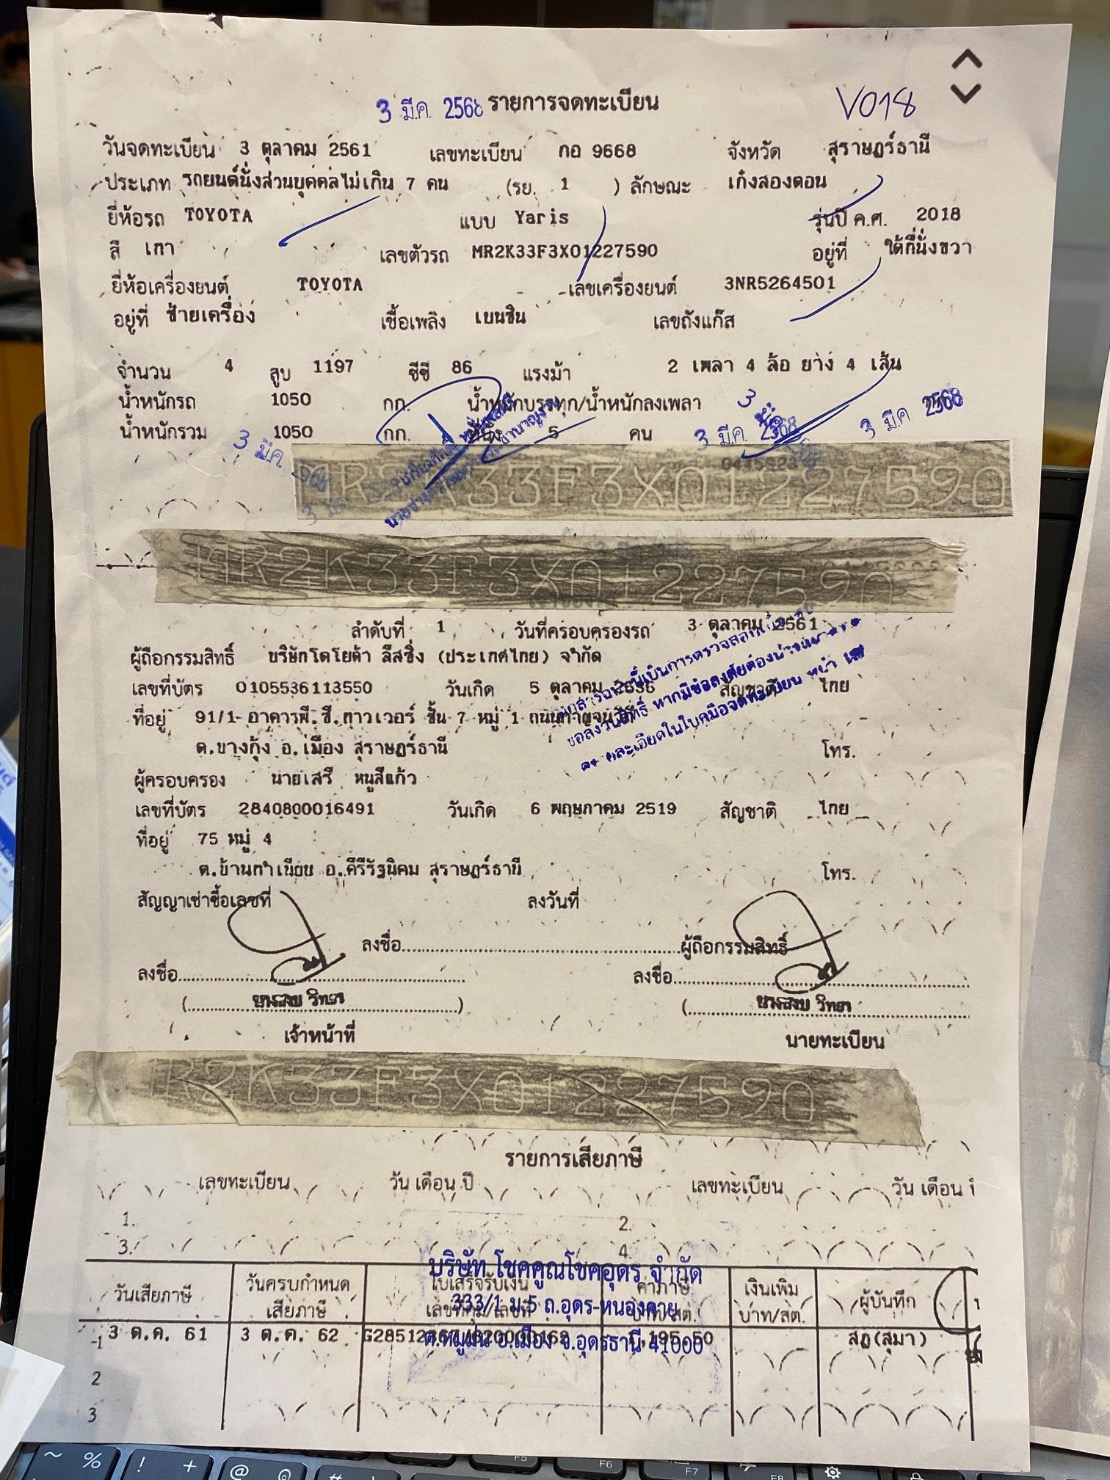 3 มี.ค. 2568 รายการจดทะเบียน V018
วันจดทะเบียน 3 ตุลาคม 2561 เลขทะเบียน กอ 9668 จังหวัด สุราษฎร์ธานี
ประเภท รถยนต์นั่งส่วนบุคคลไม่เกิน 7 คน (รย. 1 ) ลักษณะ เก๋งสองตอน
ยี่ห้อรถ TOYOTA แบบ Yaris รุ่นปี ค.ศ. 2018
สี เทา เลขตัวรถ MR2K33F3X01227590 อยู่ที่ ใต้ที่นั่งขวา
ยี่ห้อเครื่องยนต์ TOYOTA เลขเครื่องยนต์ 3NR5264501
อยู่ที่ ซ้ายเครื่อง เชื้อเพลิง เบนซิน เลขถังแก๊ส
จำนวน 4 สูบ 1197 ซีซี 86 แรงม้า 2 เพลา 4 ล้อ ยาง 4 เส้น
น้ำหนักรถ 1050 กก. น้ำหนักบรรทุก/น้ำหนักลงเพลา 3 มี.ค. 2568
น้ำหนักรวม 1050 กก. 5 คน 3 มี.ค. 2568
3 มี.ค. 2568
MR2K33F3X01227590
MR2K33F3X01227590
ลำดับที่ 1 วันที่ครอบครองรถ 3 ตุลาคม 2561
ผู้ถือกรรมสิทธิ์ บริษัทโตโยต้า ลีสซิ่ง (ประเทศไทย) จำกัด
เลขที่บัตร 0105536113550 วันเกิด 5 ตุลาคม 2536 สัญชาติ ไทย
ที่อยู่ 91/1 อาคารพี.ซี.ทาวเวอร์ ชั้น 7 หมู่ 1
ต.บางกุ้ง อ.เมือง สุราษฎร์ธานี โทร.
ผู้ครอบครอง นายเสรี หนูสีแก้ว
เลขที่บัตร 2840800016491 วันเกิด 6 พฤษภาคม 2519 สัญชาติ ไทย
ที่อยู่ 75 หมู่ 4
ต.บ้านทำเนียบ อ.คีรีรัฐนิคม สุราษฎร์ธานี โทร.
สัญญาเช่าซื้อเลขที่ ลงวันที่
ลงชื่อ ผู้ถือกรรมสิทธิ์
ลงชื่อ ลงชื่อ
เจ้าหน้าที่ นายทะเบียน
R2K33F3X01227590
รายการเสียภาษี
เลขทะเบียน วัน เดือน ปี เลขทะเบียน วัน เดือน
1. 2.
3. 4
บริษัท โชคคูณโชคอุดร จำกัด
วันเสียภาษี วันครบกำหนด ใบเสร็จรับเงิน ค่าภาษี เงินเพิ่ม ผู้บันทึก
เสียภาษี บาท/สต.
333/1 ม.5 ถ.อุดร-หนองคาย
1 3 ต.ค. 61 3 ต.ค. 62 1,195.50 สฎ(สุมา)
ต.หมูม่น อ.เมือง จ.อุดรธานี 41000
2
3